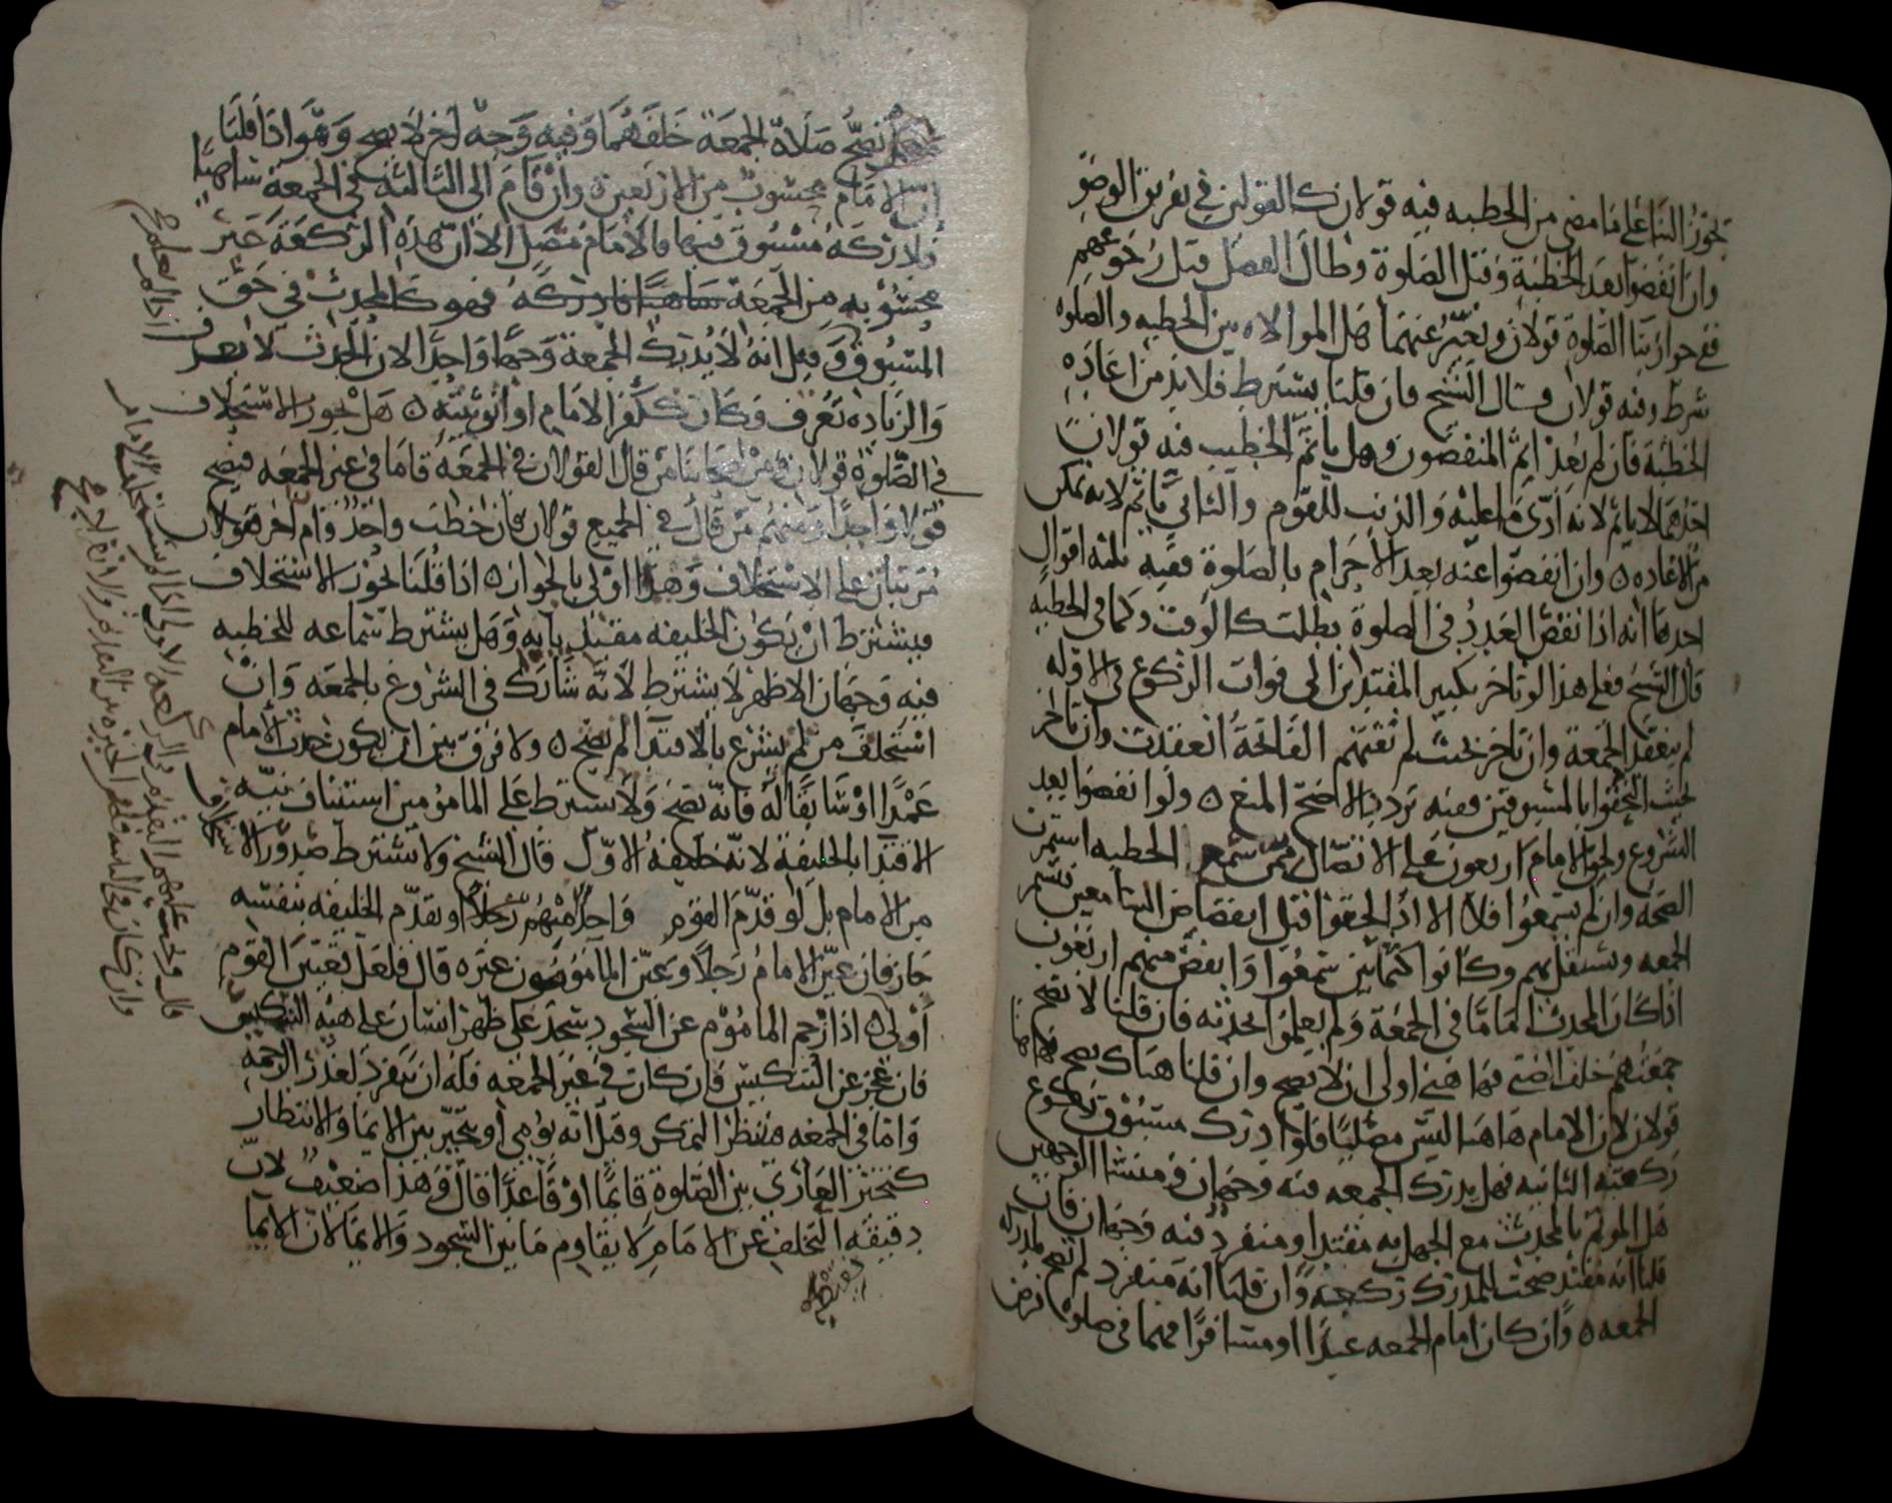 تجوز البنا على ما مضى من الخطبه فيه قولان كالقولين في تفريق الوضو
وان انفضوا بعد الخطبة وقبل الصلوة وطال الفصل قبل رجوعهم
ففي جواز بنا الصلوة قولان ويعبر عنهما هل الموالاه بين الخطبه والصلوه
شرط وفيه قولان قال الشيخ فان قلنا يشترط فلا بد من اعاده
الخطبة فان لم يعد اثم المنفضون وهل ياثم الخطيب فيه قولان
احدهما لا ياثم لانه ادى ما عليه والذنب للقوم والثاني ياثم لانه تمكن
من الاعاده ٥ وان انفضوا عنه بعد الاحرام بالصلوة ففيه ثلثه اقوال
احدها انه اذا نقص العدد في الصلوة بطلت كالوقت وكما في الخطبه
قال الشيخ فعلى هذا لو تاخر تكبير المقتدين الى فوات الركوع في الاوله
لم ينعقد الجمعة وان تاخر بحيث لم تفتهم الفاتحة انعقدت وان تاخر
بحيث التحقوا بالمسبوقين ففيه تردد الاصح المنع ٥ ولو انفضوا بعد
الشروع ولحق الامام اربعون على الاتصال ممن سمع الخطبه استمرت
الصحة وان لم يسمعوا فلا الا اذا لحقوا قبل انفضاض السامعين فتتم
الجمعه وتستقل بهم وكانوا كثمانين سمعوا وانفض منهم اربعون
اذا كان المحدث اماما في الجمعة ولم يعلموا بحدثه فان قلنا لا تصح
جمعتهم خلف الصبي فهاهنا اولى ان لا يصح وان قلنا هناك يصح فهاهنا
قولان لان الامام هاهنا ليس مصليا فلو ادرك مسبوق ركوع
ركعته الثانيه فهل يدرك الجمعه فيه وجهان ومنشا الوجهين
هل الموتم بالمحدث مع الجهل به مقتد او منفرد فيه وجهان فان
قلنا انه مقتد صحت للمدرك ركعه وان قلنا انه منفرد لم تصح لمدرك
الجمعه ٥ وان كان امام الجمعه عبدا او مسافرا فهما في صلوه فرض
تصح صلاة الجمعة خلفهما وفيه وجه اخر لا يصح وهو اذا قلنا
ان الامام محسوب من الاربعين ٥ وان قام الى الثالثه في الجمعة ساهيا
فلادركه مسبوق فيها فالامام مصل الا ان هذه الركعة غير
محسوبه من الجمعة ساهيا فادركه فهو كالمحدث في حق
المسبوق وقيل انه لا يدرك الجمعة وجها واحدا لان الحدث لا يعرف
والزياده تعرف وكان ككفر الامام او انوثته ٥ هل يجوز الاستخلاف
في الصلوة قولان ومن اصحابنا من قال القولان في الجمعة فاما في غير الجمعه فيصح
قولا واحدا ومنهم من قال في الجميع قولان فان خطب واحد وام اخر فقولان
مرتبان على الاستخلاف وهذا اولى بالجواز ٥ اذا قلنا يجوز الاستخلاف
فيشترط ان يكون الخليفه مقتد يا به وهل يشترط سماعه للخطبه
فيه وجهان الاظهر لا يشترط لانه شارك في الشروع بالجمعه وان
استخلف من لم يشرع بالاقتدا لم يصح ٥ ولا فرق بين ان يكون حدث الامام
عمدا او سابقا له فانه يصح ولا يشترط على المامومين استيناف نية
الاقتدا بالخليفة لانه خليفة الاول قال الشيخ ولا يشترط صدور الاستخلاف
من الامام بل لو قدم القوم واحد منهم رجلا او تقدم الخليفه بنفسه
جاز فان عين الامام رجلا وعين المامومون غيره قال فلعل تعيين القوم
اولى ٥ اذا زحم الماموم عن السجود سجد على ظهر انسان على هيئة التنكيس
فان عجز عن التنكيس فان كان في غير الجمعه فله ان ينفرد لعذر الزحمه
واما في الجمعه فينتظر التمكن وقيل انه يومي او يتخير بين الايما والانتظار
كتخير العاري بين الصلوة قايما او قاعدا قال وهذا ضعيف لان
دقيقة التخلف عن الامام لا يقاوم ما بين السجود والايما لان الايما